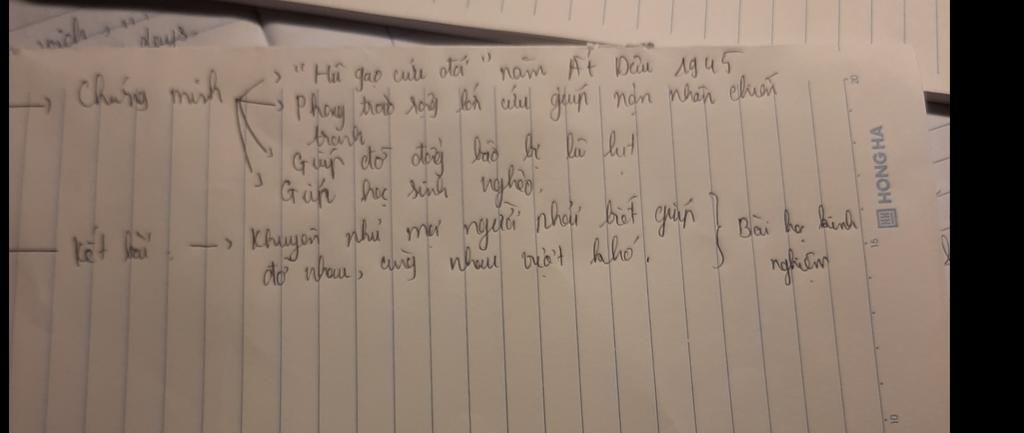 mình, days
→ Chứng minh
→ "Hũ gạo cứu đói" năm Ất Dậu 1945
→ Phong trào rộng lớn cứu giúp nạn nhân chiến
tranh
→ Giúp đỡ đồng bào bị lũ lụt
→ Giúp học sinh nghèo.
Kết bài → Khuyên nhủ mọi người phải biết giúp
đỡ nhau, cùng nhau vượt khó.
Bài học kinh
nghiệm
HONG HA
20
15
10